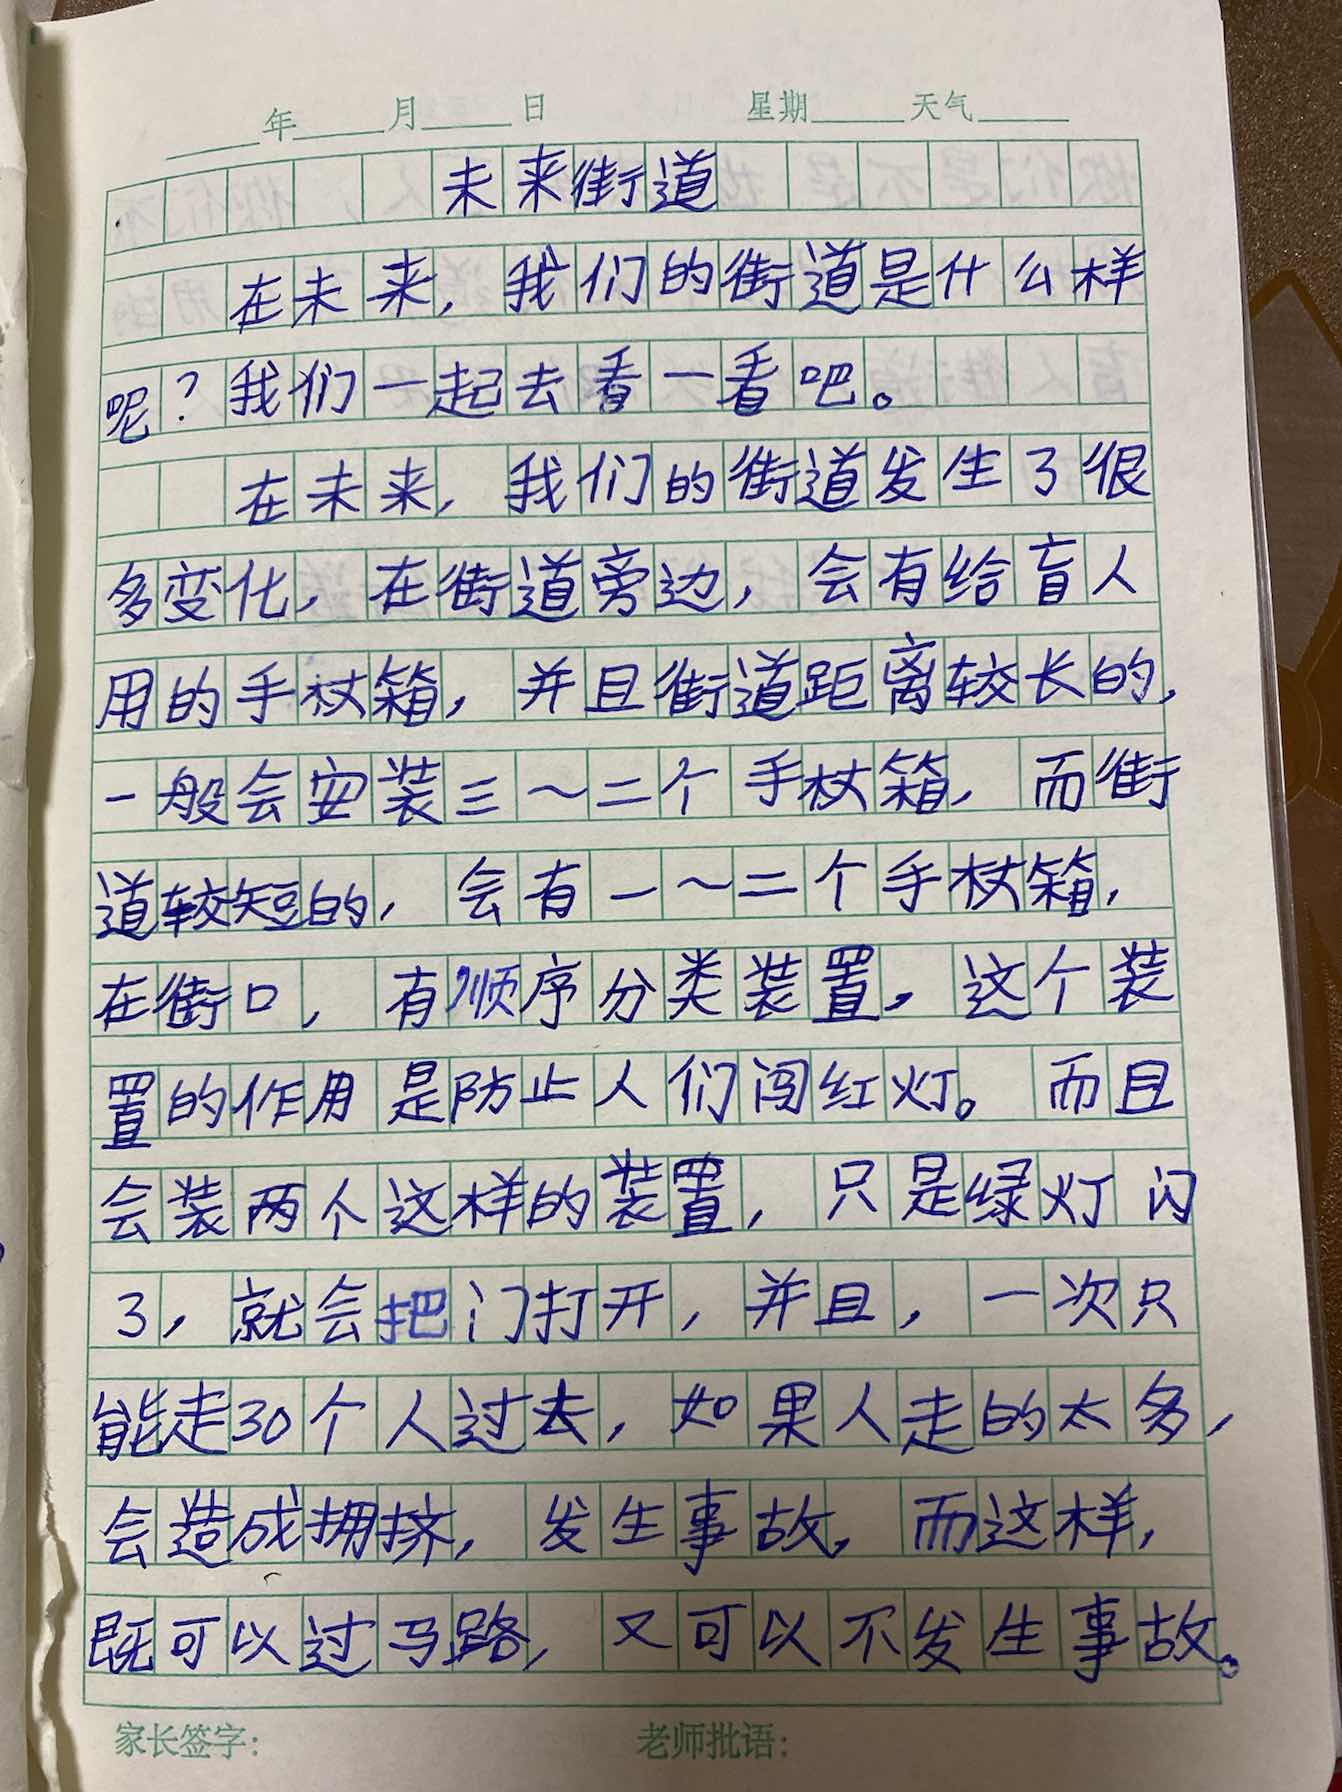 年 月 日 星期 天气
未来街道
在未来，我们的街道是什么样
呢？我们一起去看一看吧。
在未来，我们的街道发生了很
多变化，在街道旁边，会有给盲人
用的手杖箱，并且街道距离较长的，
一般会安装三～二个手杖箱，而街
道较短的，会有一～二个手杖箱，
在街口，有顺序分类装置，这个装
置的作用是防止人们闯红灯。而且
会装两个这样的装置，只是绿灯闪
了，就会把门打开，并且，一次只
能走30个人过去，如果人走的太多，
会造成拥挤，发生事故，而这样，
既可以过马路，又可以不发生事故。
家长签字： 老师批语：